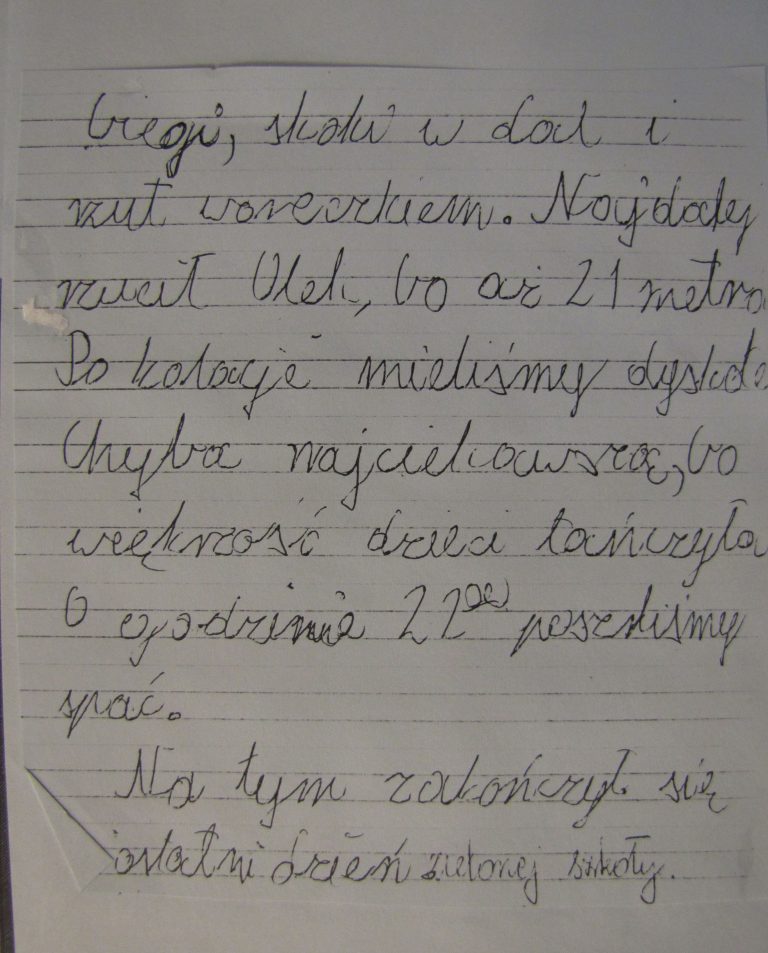 biegi, skoki w dal i
rzut woreczkiem. Najdalej
rzucił Olek, bo aż 21 metro
Po kolacji mieliśmy dyskote
Chyba najciekawszą, bo
większość dzieci tańczyła
O godzinie 22⁰⁰ poszliśmy
spać.
Na tym zakończył się
ostatni dzień zielonej szkoły.